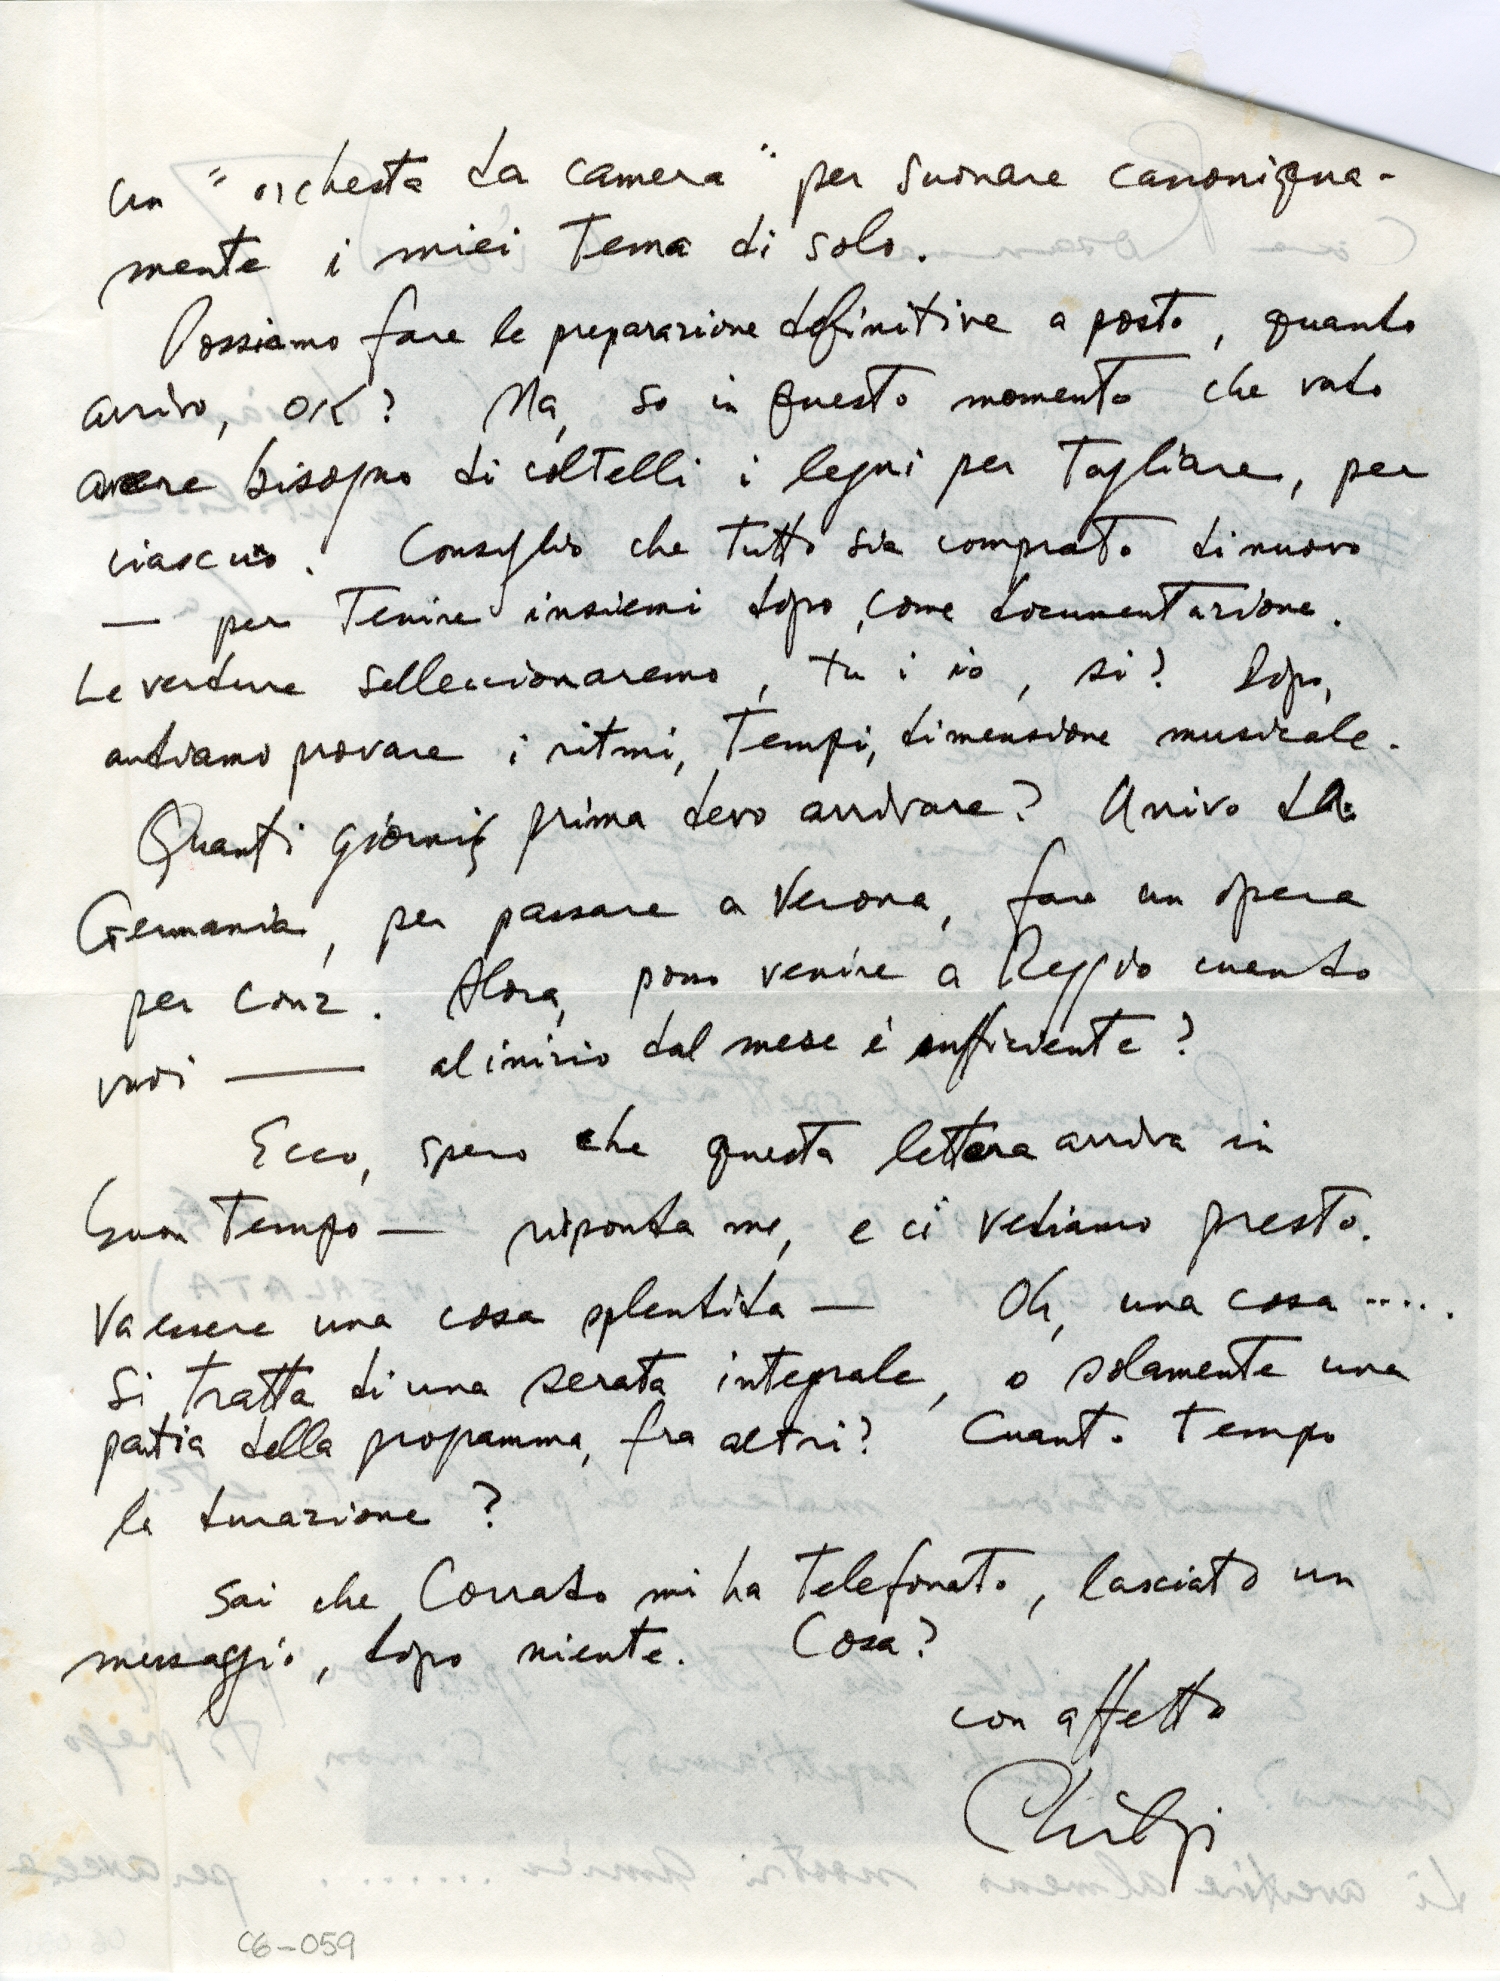 un "orchesta da camera" per suonare canoniqua-
mente i miei tema di solo.
Possiamo fare le preparazione definitive a posto, quando
arrivo, OK? Ma, so in questo momento che vado
avere bisogno di coltelli i legni per tagliare, per
ciascuo. Consiglio che tutto sia comprato di nuovo
— per tenire insiemi dopo, come documentazione.
Le verdure selleccionaremo, tu i io, si? Dopo,
andiamo provare i ritmi, tempi, dimensione musicale.
Quanti giorni prima devo arrivare? Arrivo da
Germania, per passare a Verona, fare un opera
per Conz. Alora, posso venire a Reggio cuando
vuoi — al inizio dal mese é sufficiente?
Ecco, spero che questa lettera arriva in
buon tempo — risponda me, e ci vediamo presto.
Va essere una cosa splendida — Oh, una cosa .....
Si tratta di una serata integrale, o solamente una
partia della programma, fra altri? Cuanto tempo
la durazione?
Sai che Corrado mi ha telefonato, lasciato un
messaggio, dopo niente. Cosa?
con affetto
Philip
C6-059